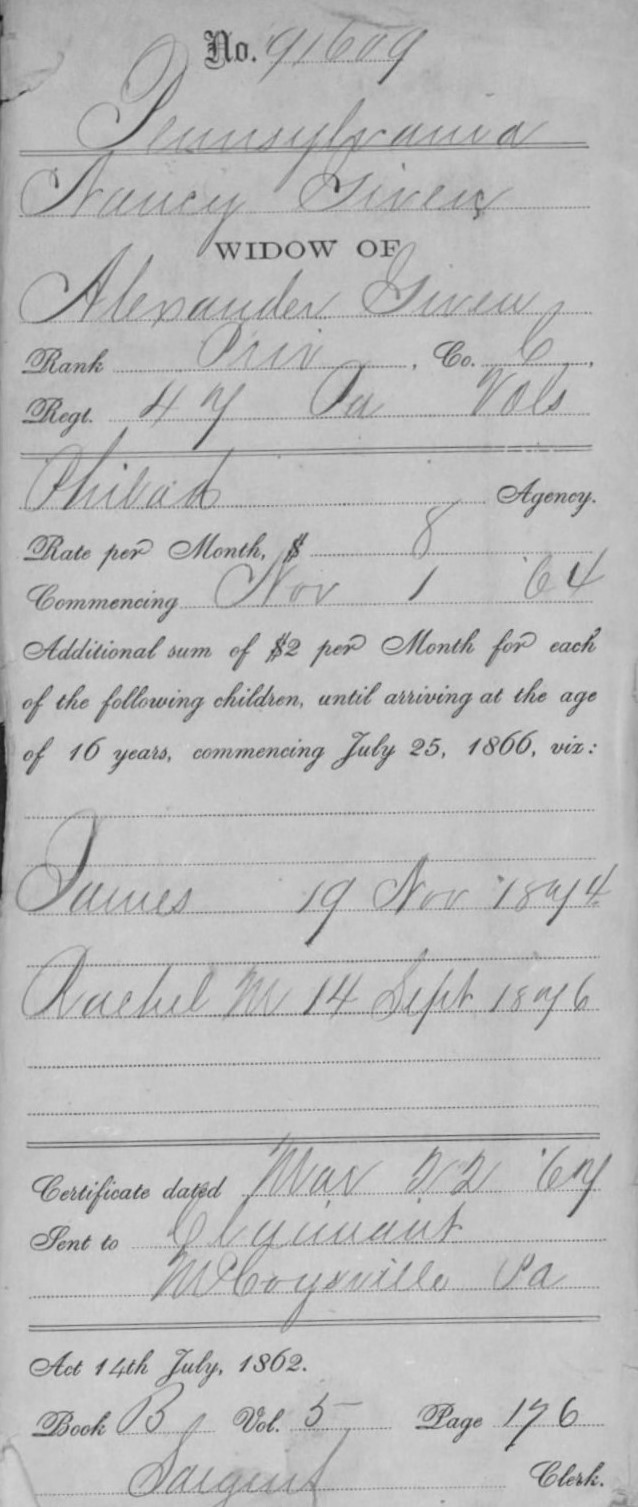 No. 91609
Pennsylvania
Nancy Given
WIDOW OF
Alexander Given
Rank Priv, Co. C,
Regt. 47 Pa Vols
Philad Agency.
Rate per Month, $ 8
Commencing Nov 1 '64
Additional sum of $2 per Month for each
of the following children, until arriving at the age
of 16 years, commencing July 25, 1866, viz:
James 19 Nov 1874
Rachel M 14 Sept 1876
Certificate dated Mar 22 '67
Sent to Claimant
McCoysville Pa
Act 14th July, 1862.
Book B Vol. 5 Page 176
Sargent Clerk.